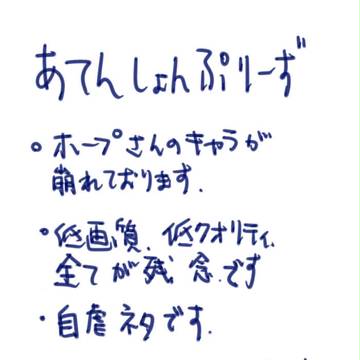 あてんしょんぷりーず
。ホープさんのキャラが
崩れております.
・低画質.低クオリティ.
全てが残念です
・自虐ネタです.